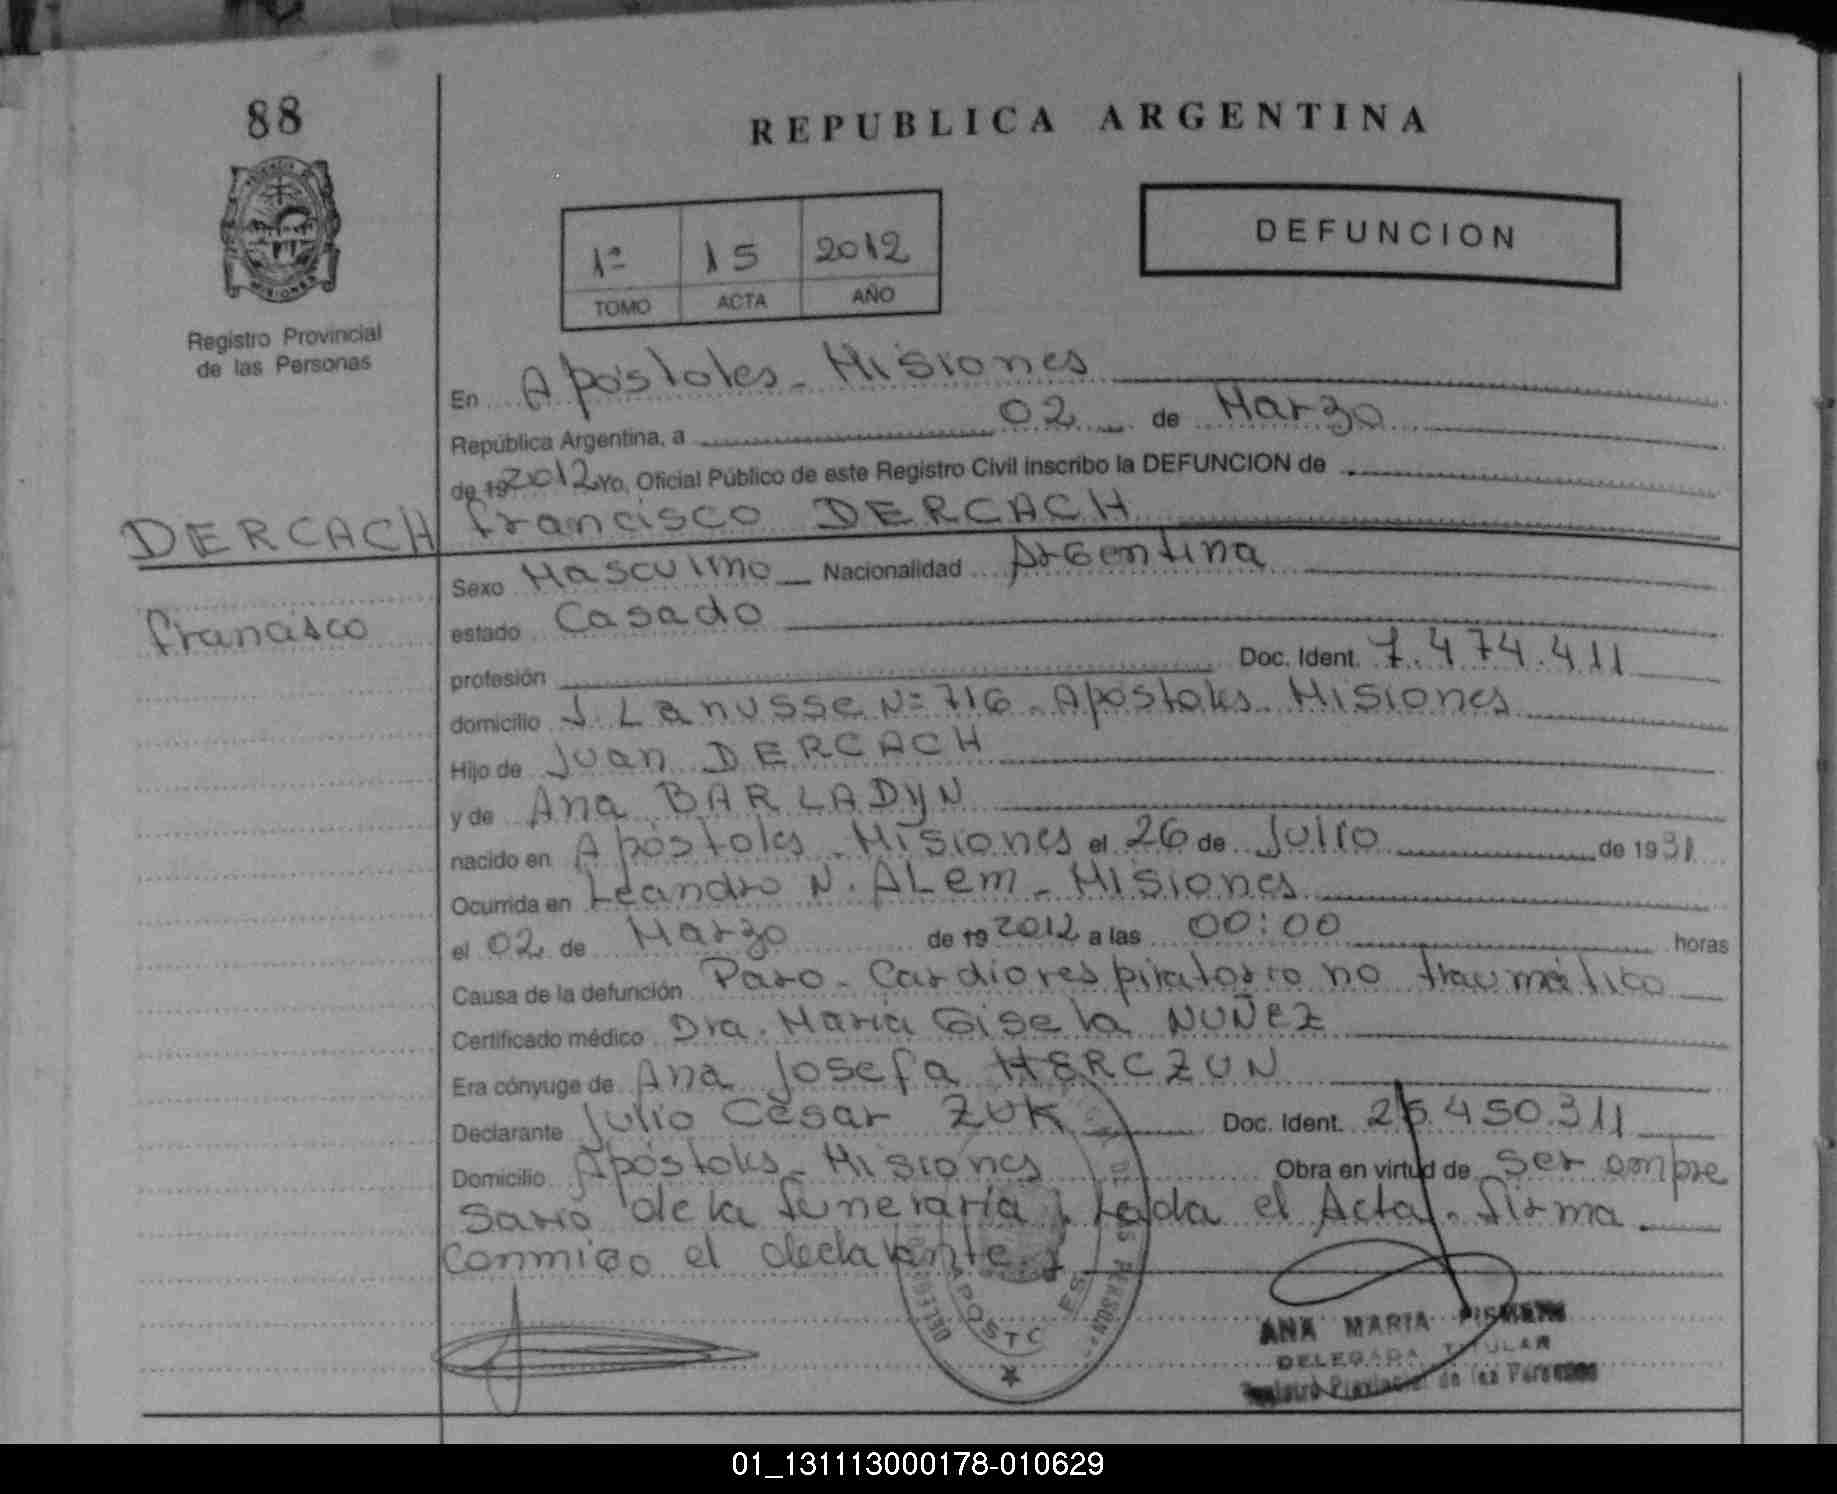 88
REPUBLICA ARGENTINA
MISIONES
Registro Provincial
de las Personas
1º 15 2012
TOMO ACTA AÑO
DEFUNCION
En Apóstoles - Misiones
República Argentina, a 02 de Marzo
de 19 2012 Yo, Oficial Público de este Registro Civil inscribo la DEFUNCION de
DERCACH Francisco DERCACH
Sexo Masculino Nacionalidad Argentina
Francisco
estado Casado
profesión Doc. Ident. 7.474.411
domicilio J. Lanusse Nº 716 - Apóstoles - Misiones
Hijo de Juan DERCACH
y de Ana BARLADYN
nacido en Apóstoles - Misiones el 26 de Julio de 1931
Ocurrida en Leandro N. ALem - Misiones
el 02 de Marzo de 19 2012 a las 00:00 horas
Causa de la defunción Paro - Cardiorespiratorio no traumático
Certificado médico Dra. María Gisela NUÑEZ
Era cónyuge de Ana Josefa HERCZUN
Declarante Julio César ZUK Doc. Ident. 25.450.311
Domicilio Apóstoles - Misiones Obra en virtud de ser empre
sario de la funeraria, Leída el Acta, firma
conmigo el declarante.
APOSTOLES
ANA MARIA
DELEGADA TITULAR
Registro Provincial de las Personas
01_131113000178-010629